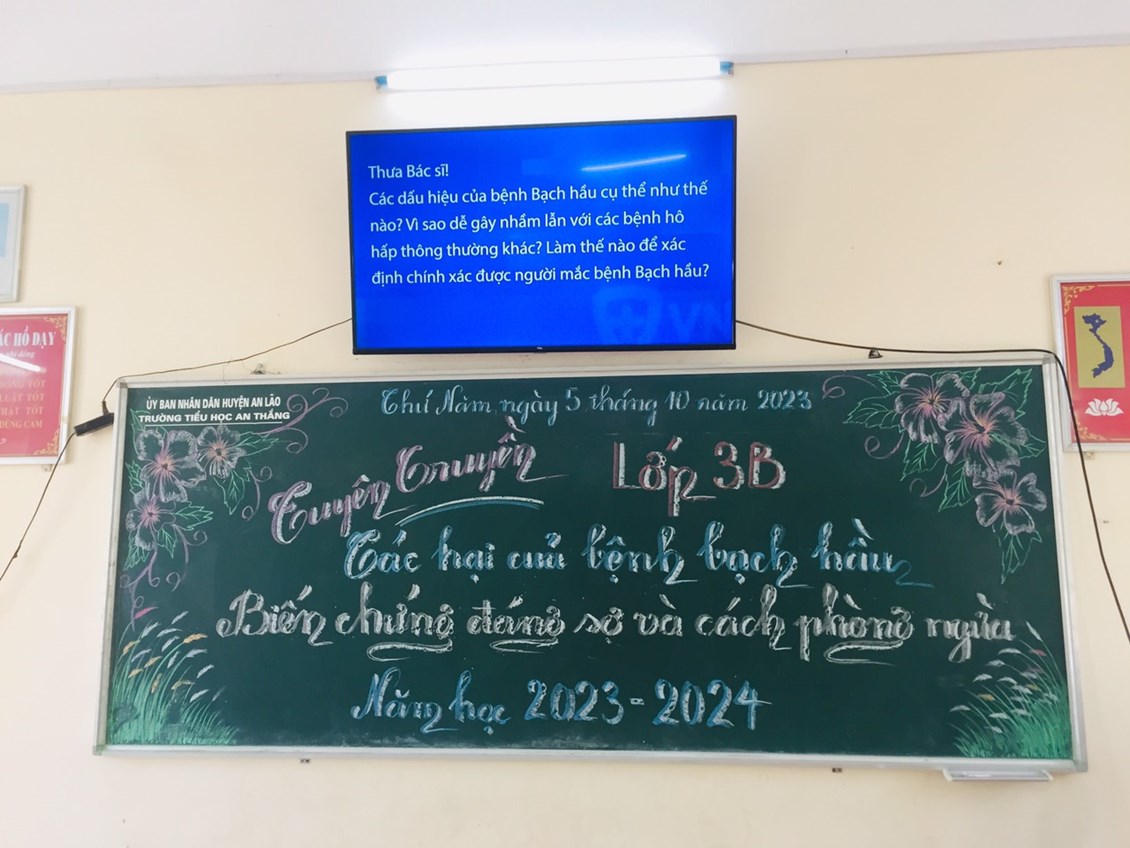 Thưa Bác sĩ!
Các dấu hiệu của bệnh Bạch hầu cụ thể như thế
nào? Vì sao dễ gây nhầm lẫn với các bệnh hô
hấp thông thường khác? Làm thế nào để xác
định chính xác được người mắc bệnh Bạch hầu?
VN
ÁC HỒ DẠY
ỦY BAN NHÂN DÂN HUYỆN AN LÃO
TRƯỜNG TIỂU HỌC AN THẮNG
Thứ Năm ngày 5 tháng 10 năm 2023
Tuyên Truyền Lớp 3B
Tác hại của bệnh bạch hầu
Biến chứng đáng sợ và cách phòng ngừa
Năm học 2023-2024